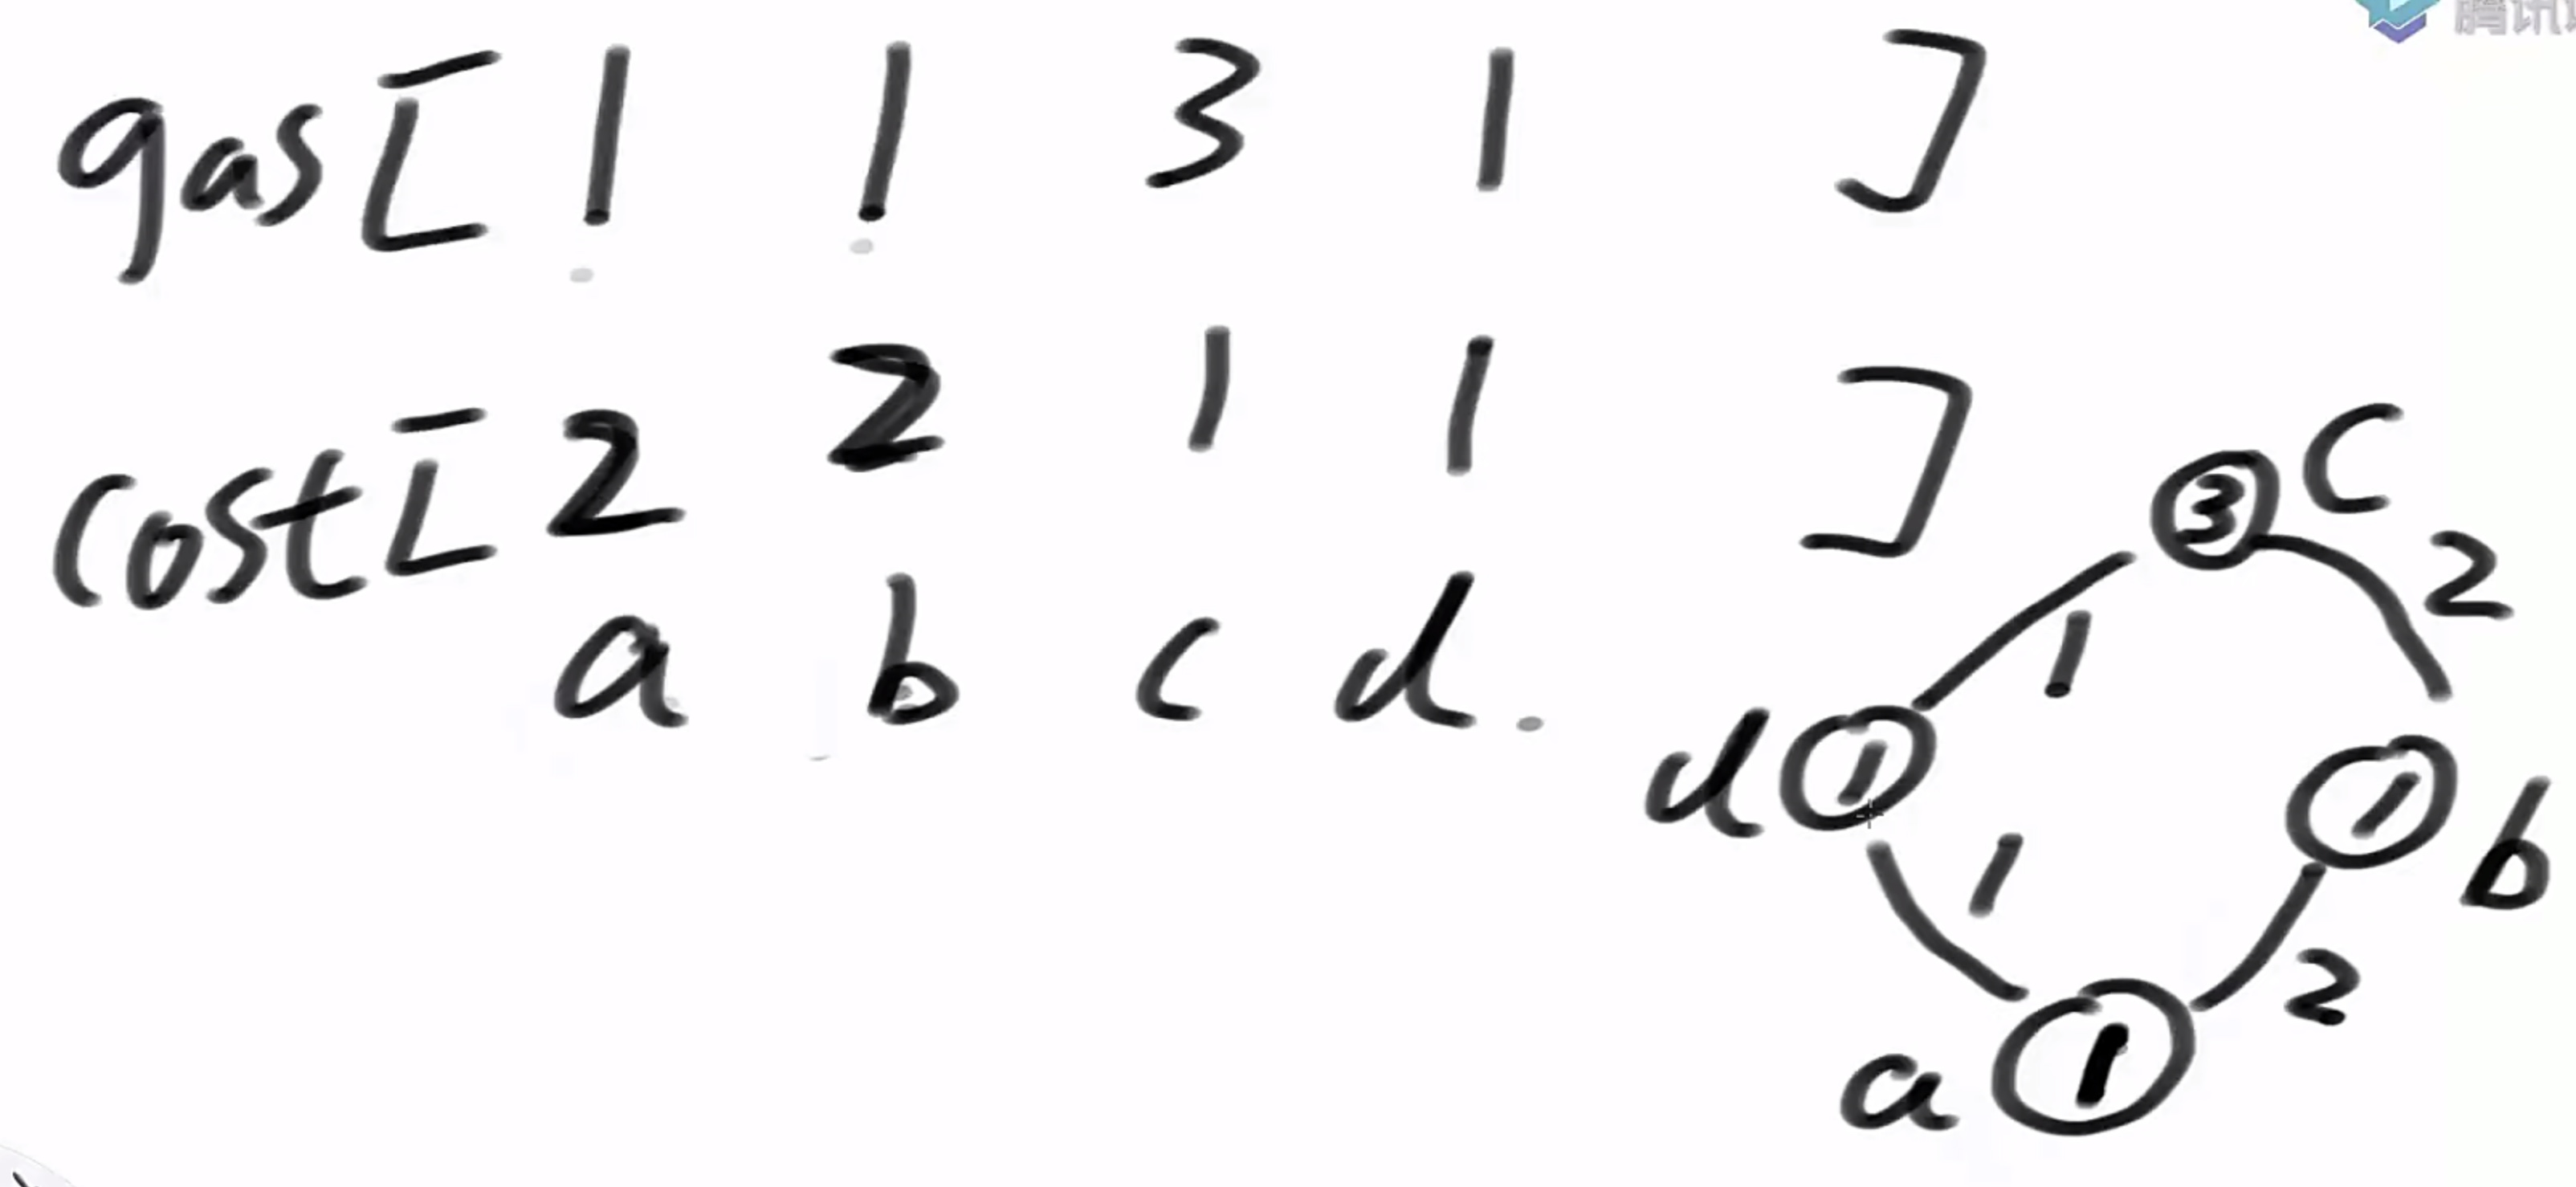 腾讯
gas [ 1 1 3 1 ]
cost [ 2 2 1 1 ]
a b c d.
③ C
2
1
d ①
① b
1
2
a ①